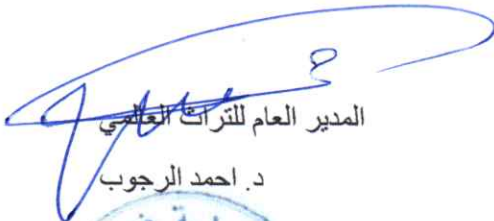 المدير العام للتراث العالمي
د. احمد الرجوب